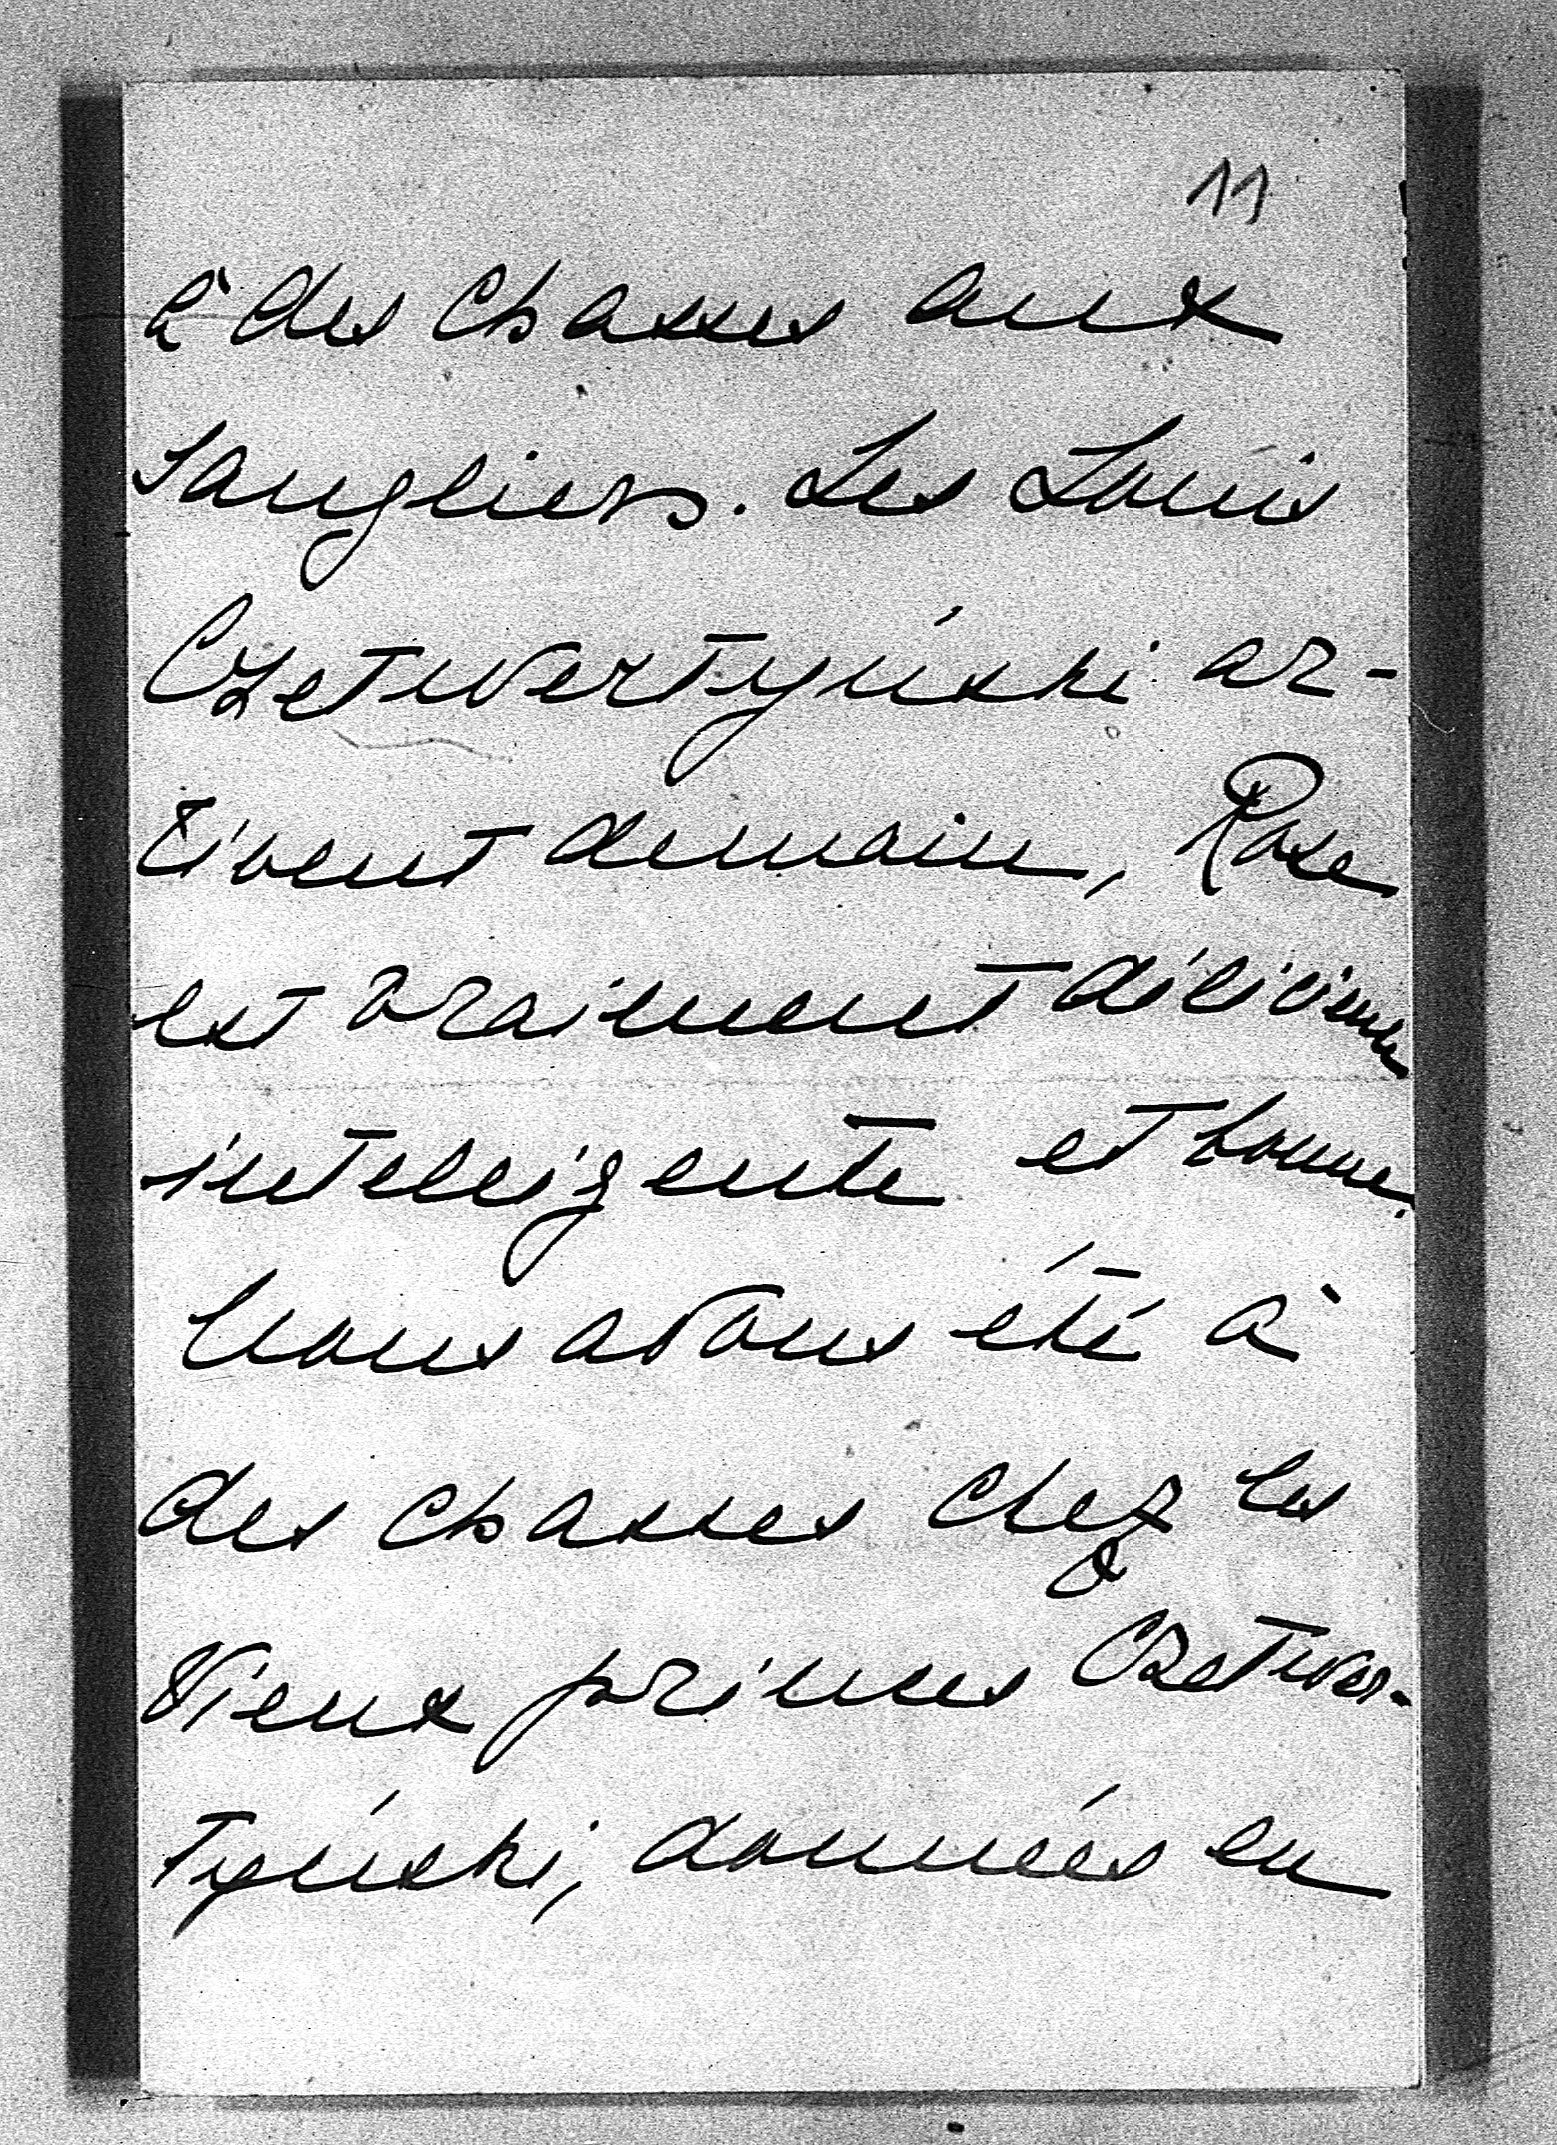 11
à des chasses aux
sangliers. Les Louis
Czetwertyński ar-
rivent demain, Rose
est vraiment délicieuse
intelligente et bonne.
Nous avons été à
des chasses chez les
vieux princes Czetwer-
tyński, données en